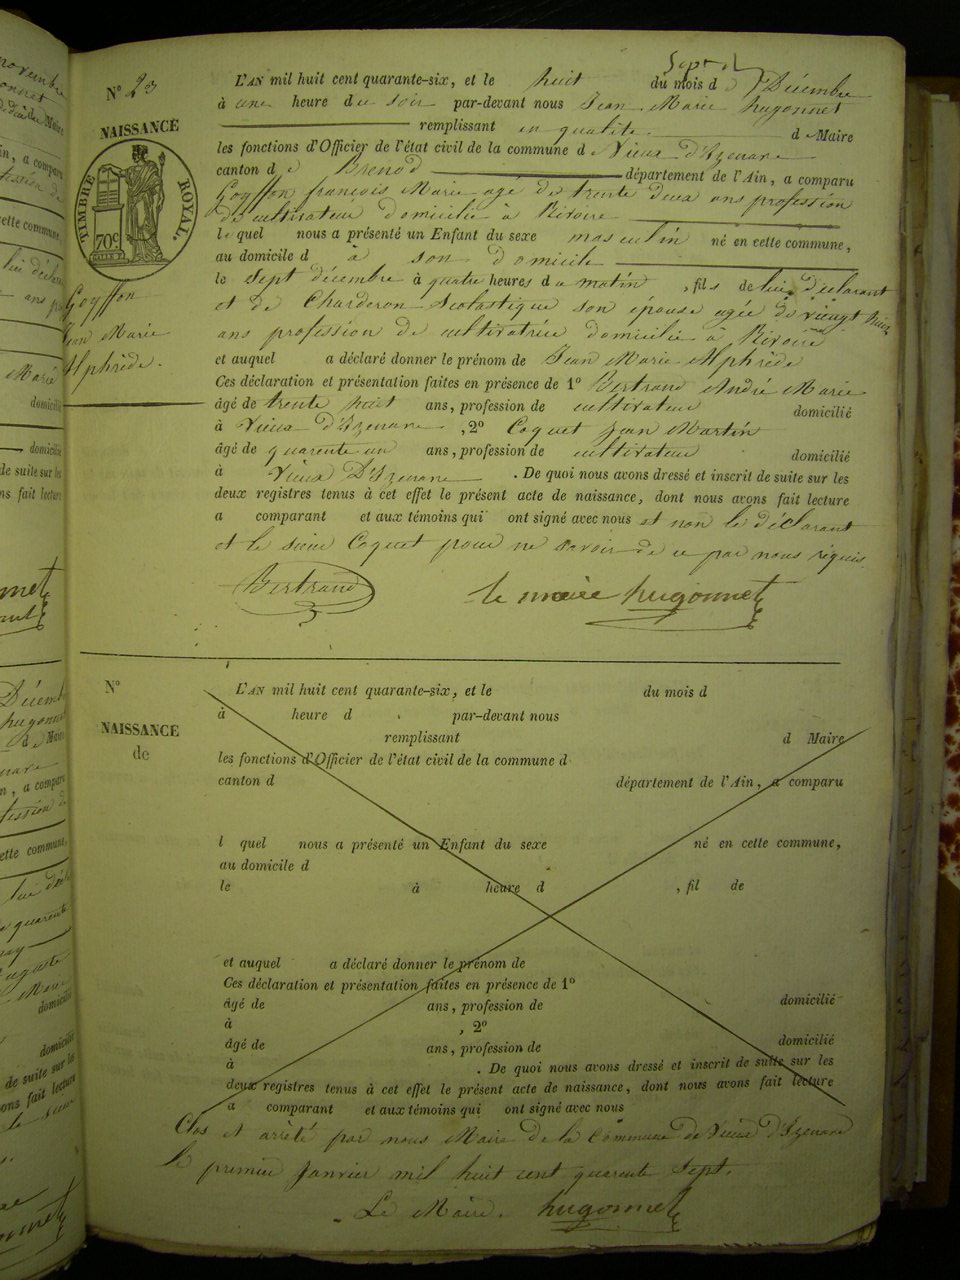 N° 23
NAISSANCE
TIMBRE ROYAL.
70c
Goyffon
Jean Marie
Alphrède.
L'AN mil huit cent quarante-six, et le huit du mois d Décembre
à une heure du soir par-devant nous Jean Marie hugonnet
remplissant en qualité d Maire
les fonctions d'Officier de l'état civil de la commune d Vieux D'Izenave
canton de Brenod département de l'Ain, a comparu
Goyffon françois Marie agé de trente deux ans profession
de cultivateur domicilié à Rivoire
lequel nous a présenté un Enfant du sexe masculin né en cette commune,
au domicile d à son domicile
le Sept décembre à quatre heures du matin, fils de lui déclarant
et de Charderon Scolastique son épouse agée de vingt huit
ans profession de cultivatrice domiciliée à Rivoire
et auquel a déclaré donner le prénom de Jean Marie Alphrède
Ces déclaration et présentation faites en présence de 1° Bertrand André Marie
âgé de trente huit ans, profession de cultivateur domicilié
à Vieux d'Izenave, 2° Coquet Jean Martin
âgé de quarente un ans, profession de cultivateur domicilié
à Vieux D'Izenave. De quoi nous avons dressé et inscrit de suite sur les
deux registres tenus à cet effet le présent acte de naissance, dont nous avons fait lecture
a comparant et aux témoins qui ont signé avec nous et non le déclarant
et le sieur Coquet pour ne savoir de ce par nous réquis
Bertrand le maire hugonnet
N°
NAISSANCE
de
L'AN mil huit cent quarante-six, et le du mois d
à heure d par-devant nous
remplissant d Maire
les fonctions d'Officier de l'état civil de la commune d
canton d département de l'Ain, a comparu
l quel nous a présenté un Enfant du sexe né en cette commune,
au domicile d
le à heure d , fil de
et auquel a déclaré donner le prénom de
Ces déclaration et présentation faites en présence de 1°
âgé de ans, profession de domicilié
à , 2°
âgé de ans, profession de domicilié
à . De quoi nous avons dressé et inscrit de suite sur les
deux registres tenus à cet effet le présent acte de naissance, dont nous avons fait lecture
a comparant et aux témoins qui ont signé avec nous
Clos et arrêté par nous Maire de la Commune de Vieux D'Izenave
le premier Janvier mil huit cent quarente Sept.
Le Maire. hugonnet